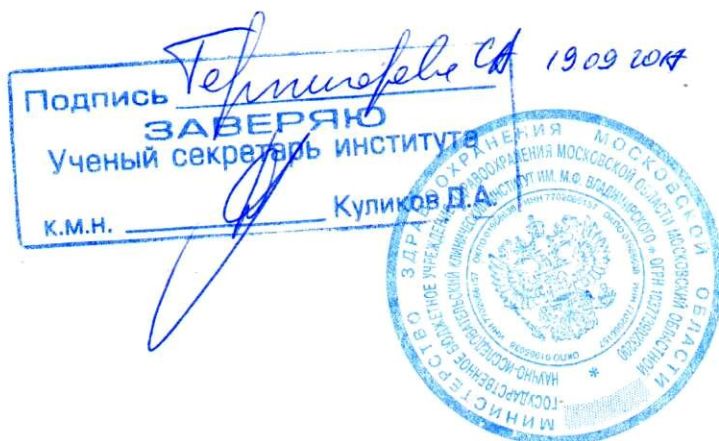 Подпись Терпигорева СА 19 09 2017
ЗАВЕРЯЮ
Ученый секретарь института
к.м.н. Куликов Д.А.
МИНИСТЕРСТВО ЗДРАВООХРАНЕНИЯ МОСКОВСКОЙ ОБЛАСТИ
ГОСУДАРСТВЕННОЕ БЮДЖЕТНОЕ УЧРЕЖДЕНИЕ ЗДРАВООХРАНЕНИЯ МОСКОВСКОЙ ОБЛАСТИ МОСКОВСКИЙ ОБЛАСТНОЙ
НАУЧНО-ИССЛЕДОВАТЕЛЬСКИЙ КЛИНИЧЕСКИЙ ИНСТИТУТ ИМ. М.Ф. ВЛАДИМИРСКОГО